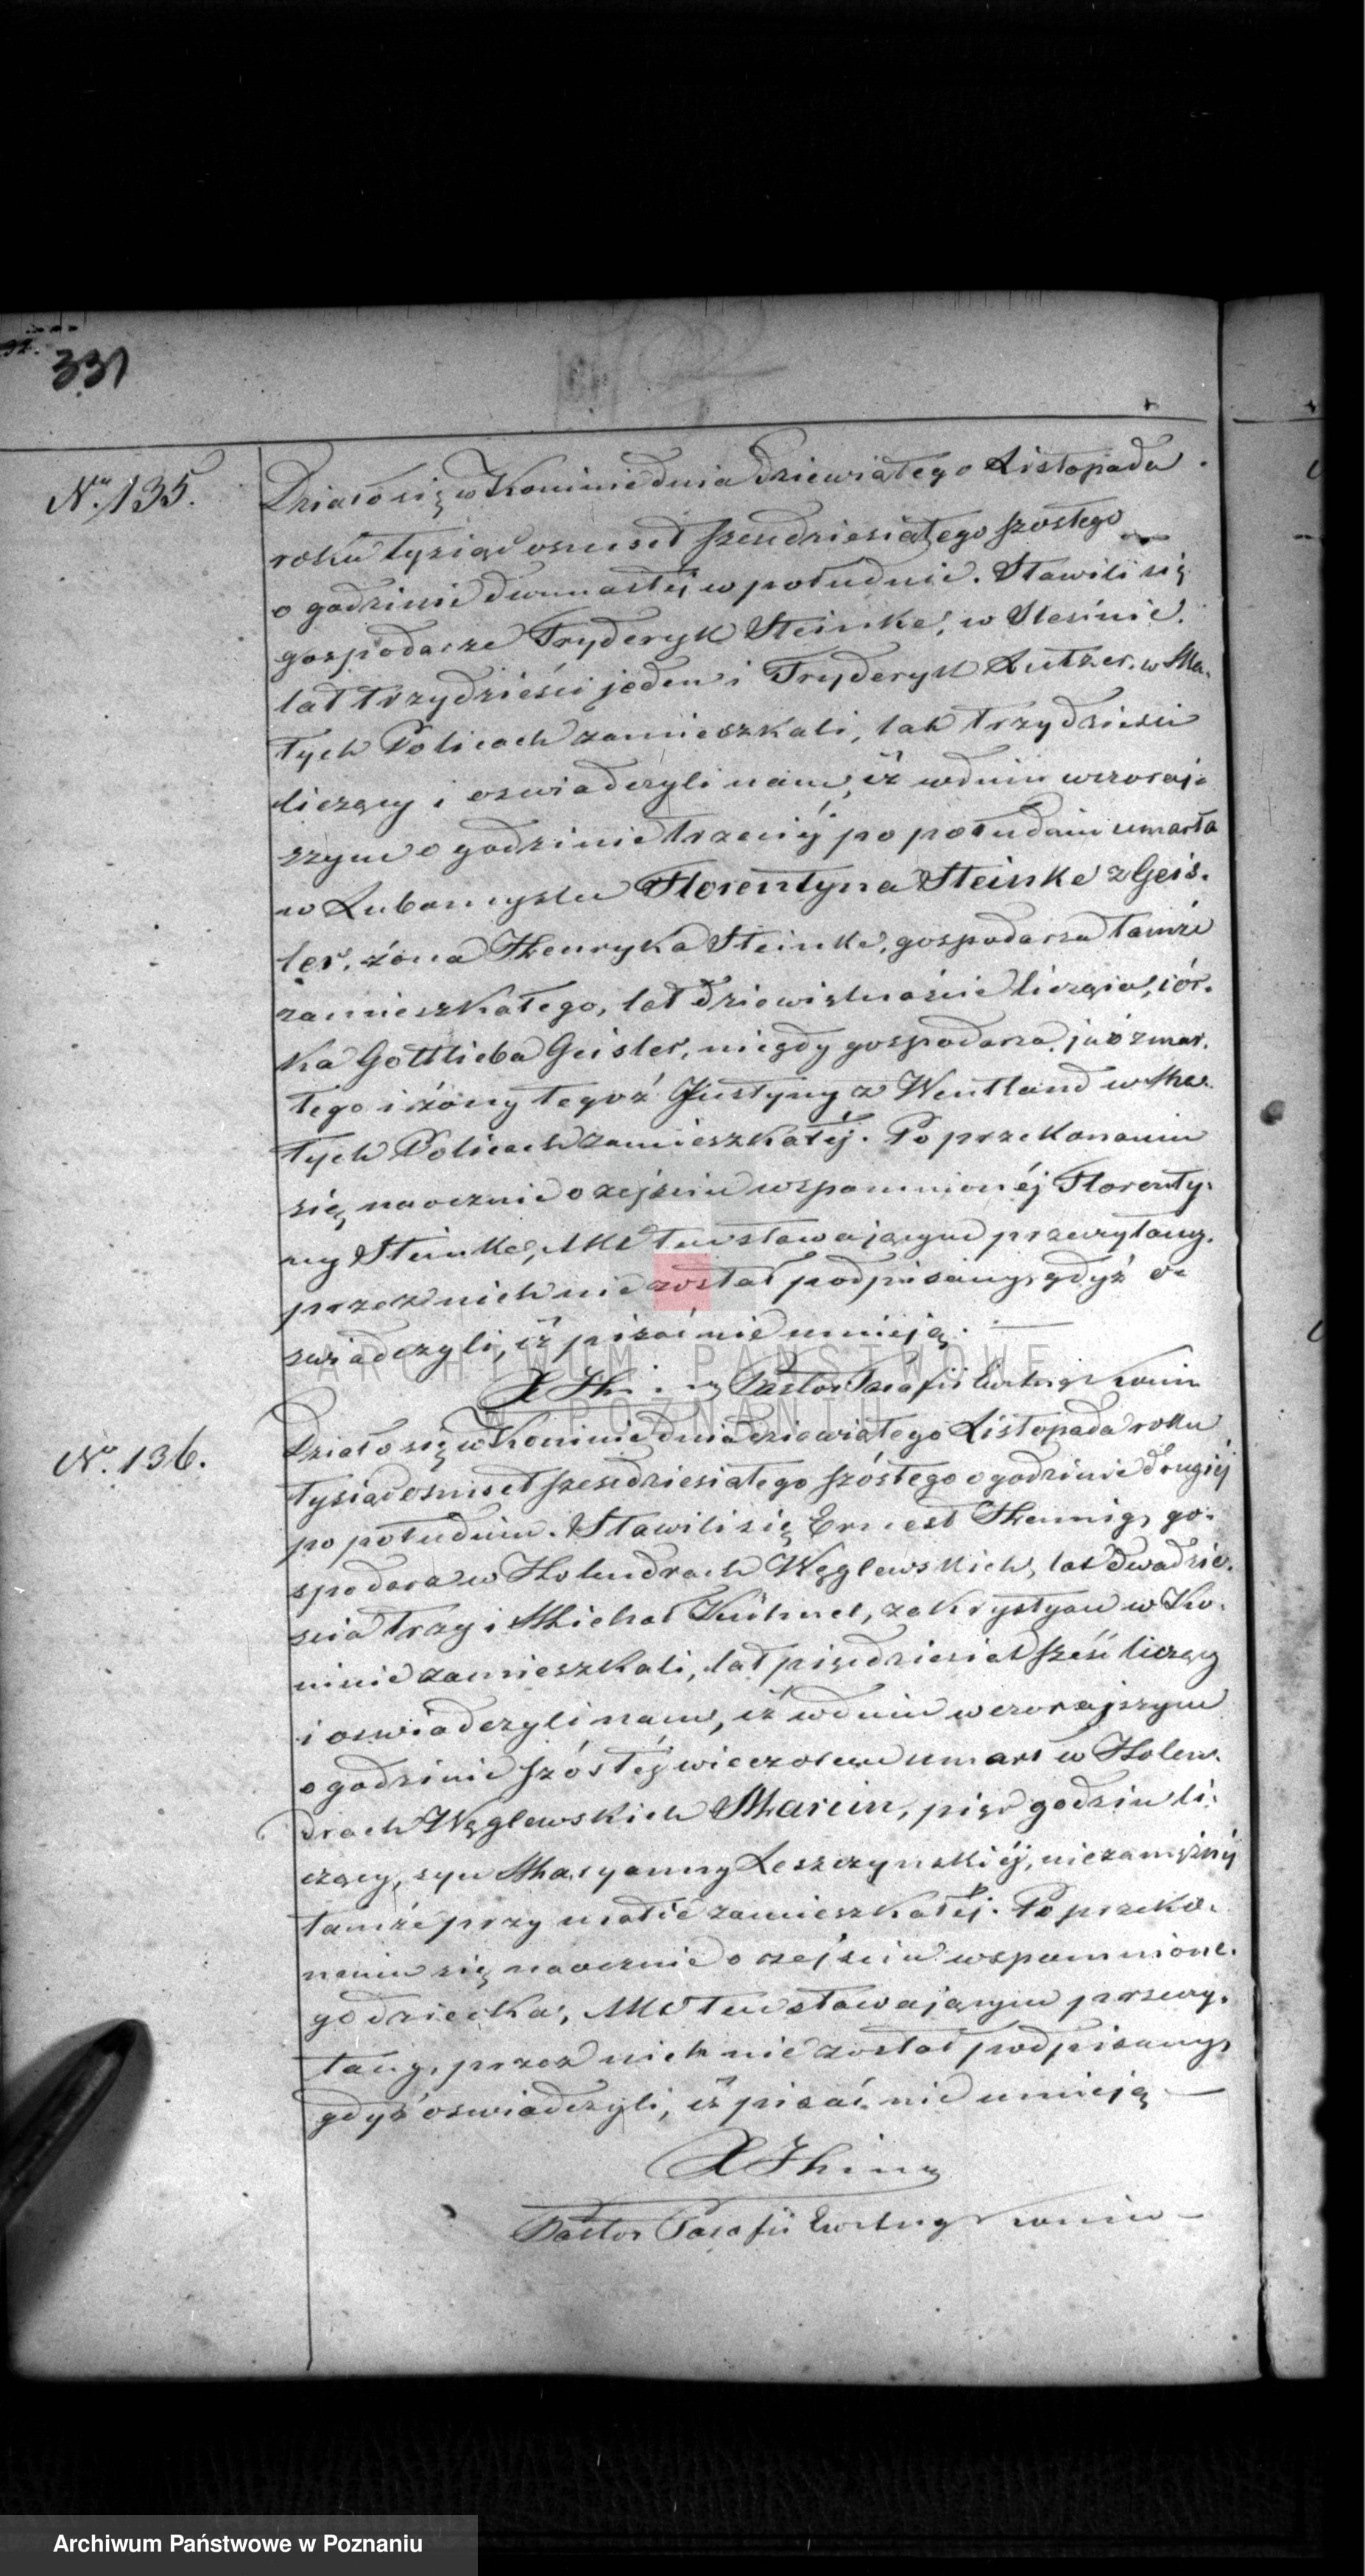 331
No 135.
Działo się w Koninie dnia dziewiątego Listopada
roku tysiąc osmset szesdziesiątego szostego
o godzinie dwunastej w południe. Stawili się
gospodarze Fryderyk Steinke, w Slesinie.
lat trzydzieści jeden i Fryderyk Lutzer. w Ma-
łych Policach zamieszkali, lat trzydziesci
liczący i oswiadczyli nam, iż w dniu wczoraj-
szym o godzinie trzeciej po południu umarła
w Lubomyslu Florentyna Steinke z Geis-
ler, żona Henryka Steinke, gospodarza tamże
zamieszkałego, lat dziewiętnaście licząca, cór-
ka Gottlieba Geisler, niegdy gospodarza, już zmar-
łego i żony tegoż Justyny z Wentland w Ma-
łych Policach zamieszkałej. Po przekonaniu
się naocznie o zejściu wspomnionéj Florenty-
ny Steinke, Akt ten stawającym przeczytany,
przez nich nie został podpisany, gdyż o-
swiadczyli, iż pisać nie umieją.
Pastor Parafii Ewang Konin
ARCHIWUM PAŃSTWOWE
W POZNANIU
No 136.
Działo się w Koninie dnia dziewiątego Listopada roku
tysiąc osmset szesdziesiątego szóstego o godzinie drugiéj
po południu. Stawili się Ernest Hennig, go-
spodarz w Holendrach Węglewskich, lat dwadzie-
scia trzy i Michał Kühnel, zakrystyan w Ko-
ninie zamieszkali, lat pięcdziesiąt sześć liczący
i oswiadczyli nam, iż w dniu wczorajszym
o godzinie szóstéj wieczorem umarł w Holen-
drach Węglewskich Marcin, pięć godzin li-
czący, syn Maryanny Leszczynskiéj, niezamężnéj
tamże przy matce zamieszkałéj. Po przeko-
naniu się naocznie o zejsciu wspomnione-
go dziecka, Akt ten stawającym przeczy-
tany, przez nich nie został podpisany,
gdyż oswiadczyli, iż pisać nie umieją
Pastor Parafii Ewang Konin
Archiwum Państwowe w Poznaniu